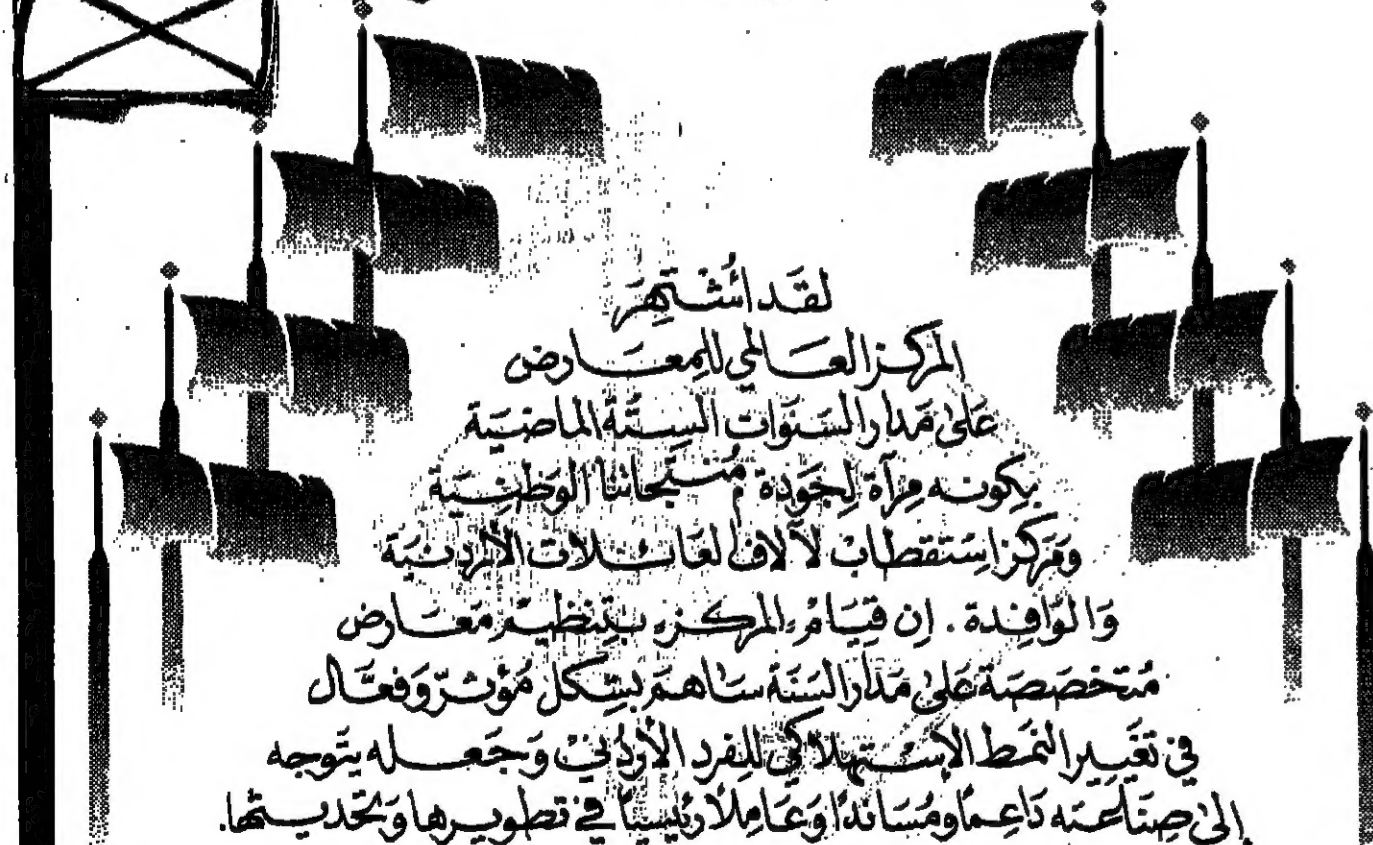 لقد اشتهر
المركز العالمي للمعارض
على مدار السنوات الستة الماضية
بكونه مرآة لجودة منتجاتنا الوطنية
ومركز استقطاب لآلاف العائلات الأردنية
والوافدة . إن قيام المركز بتنظيم معارض
متخصصة على مدار السنة ساهم بشكل مؤثر وفعال
في تغيير النمط الاستهلاكي للفرد الأردني وجعله يتوجه
إلى صناعته داعماً ومسانداً وعاملاً رئيسياً في تطويرها وتحديثها.